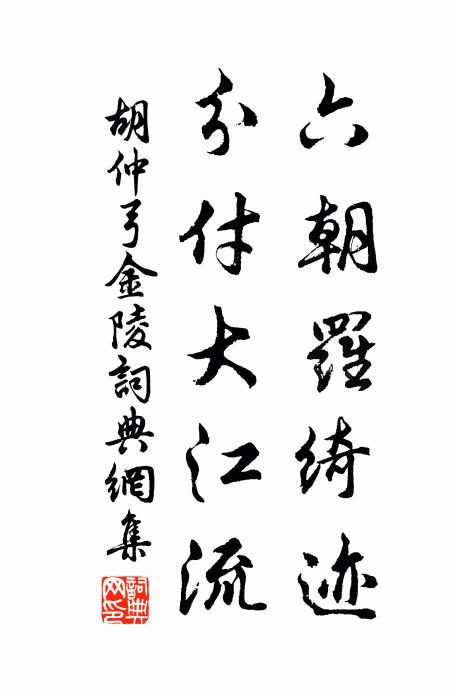 六朝羅綺迹
分付大江流
胡仲弓金陵詞典網集
詞典網印